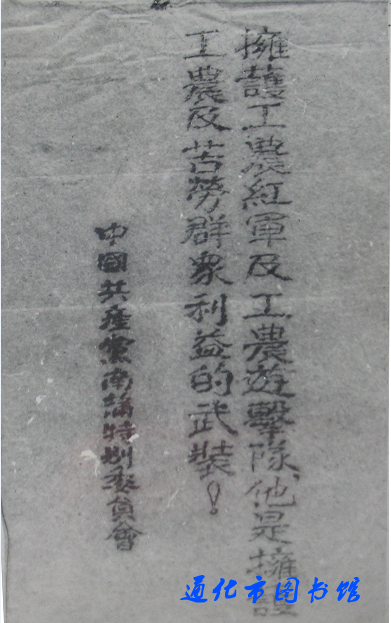 擁護工農紅軍及工農遊擊隊、他是擁護
工農及苦勞群衆利益的武裝!
中國共產黨南滿特別委員會
通化市图书馆